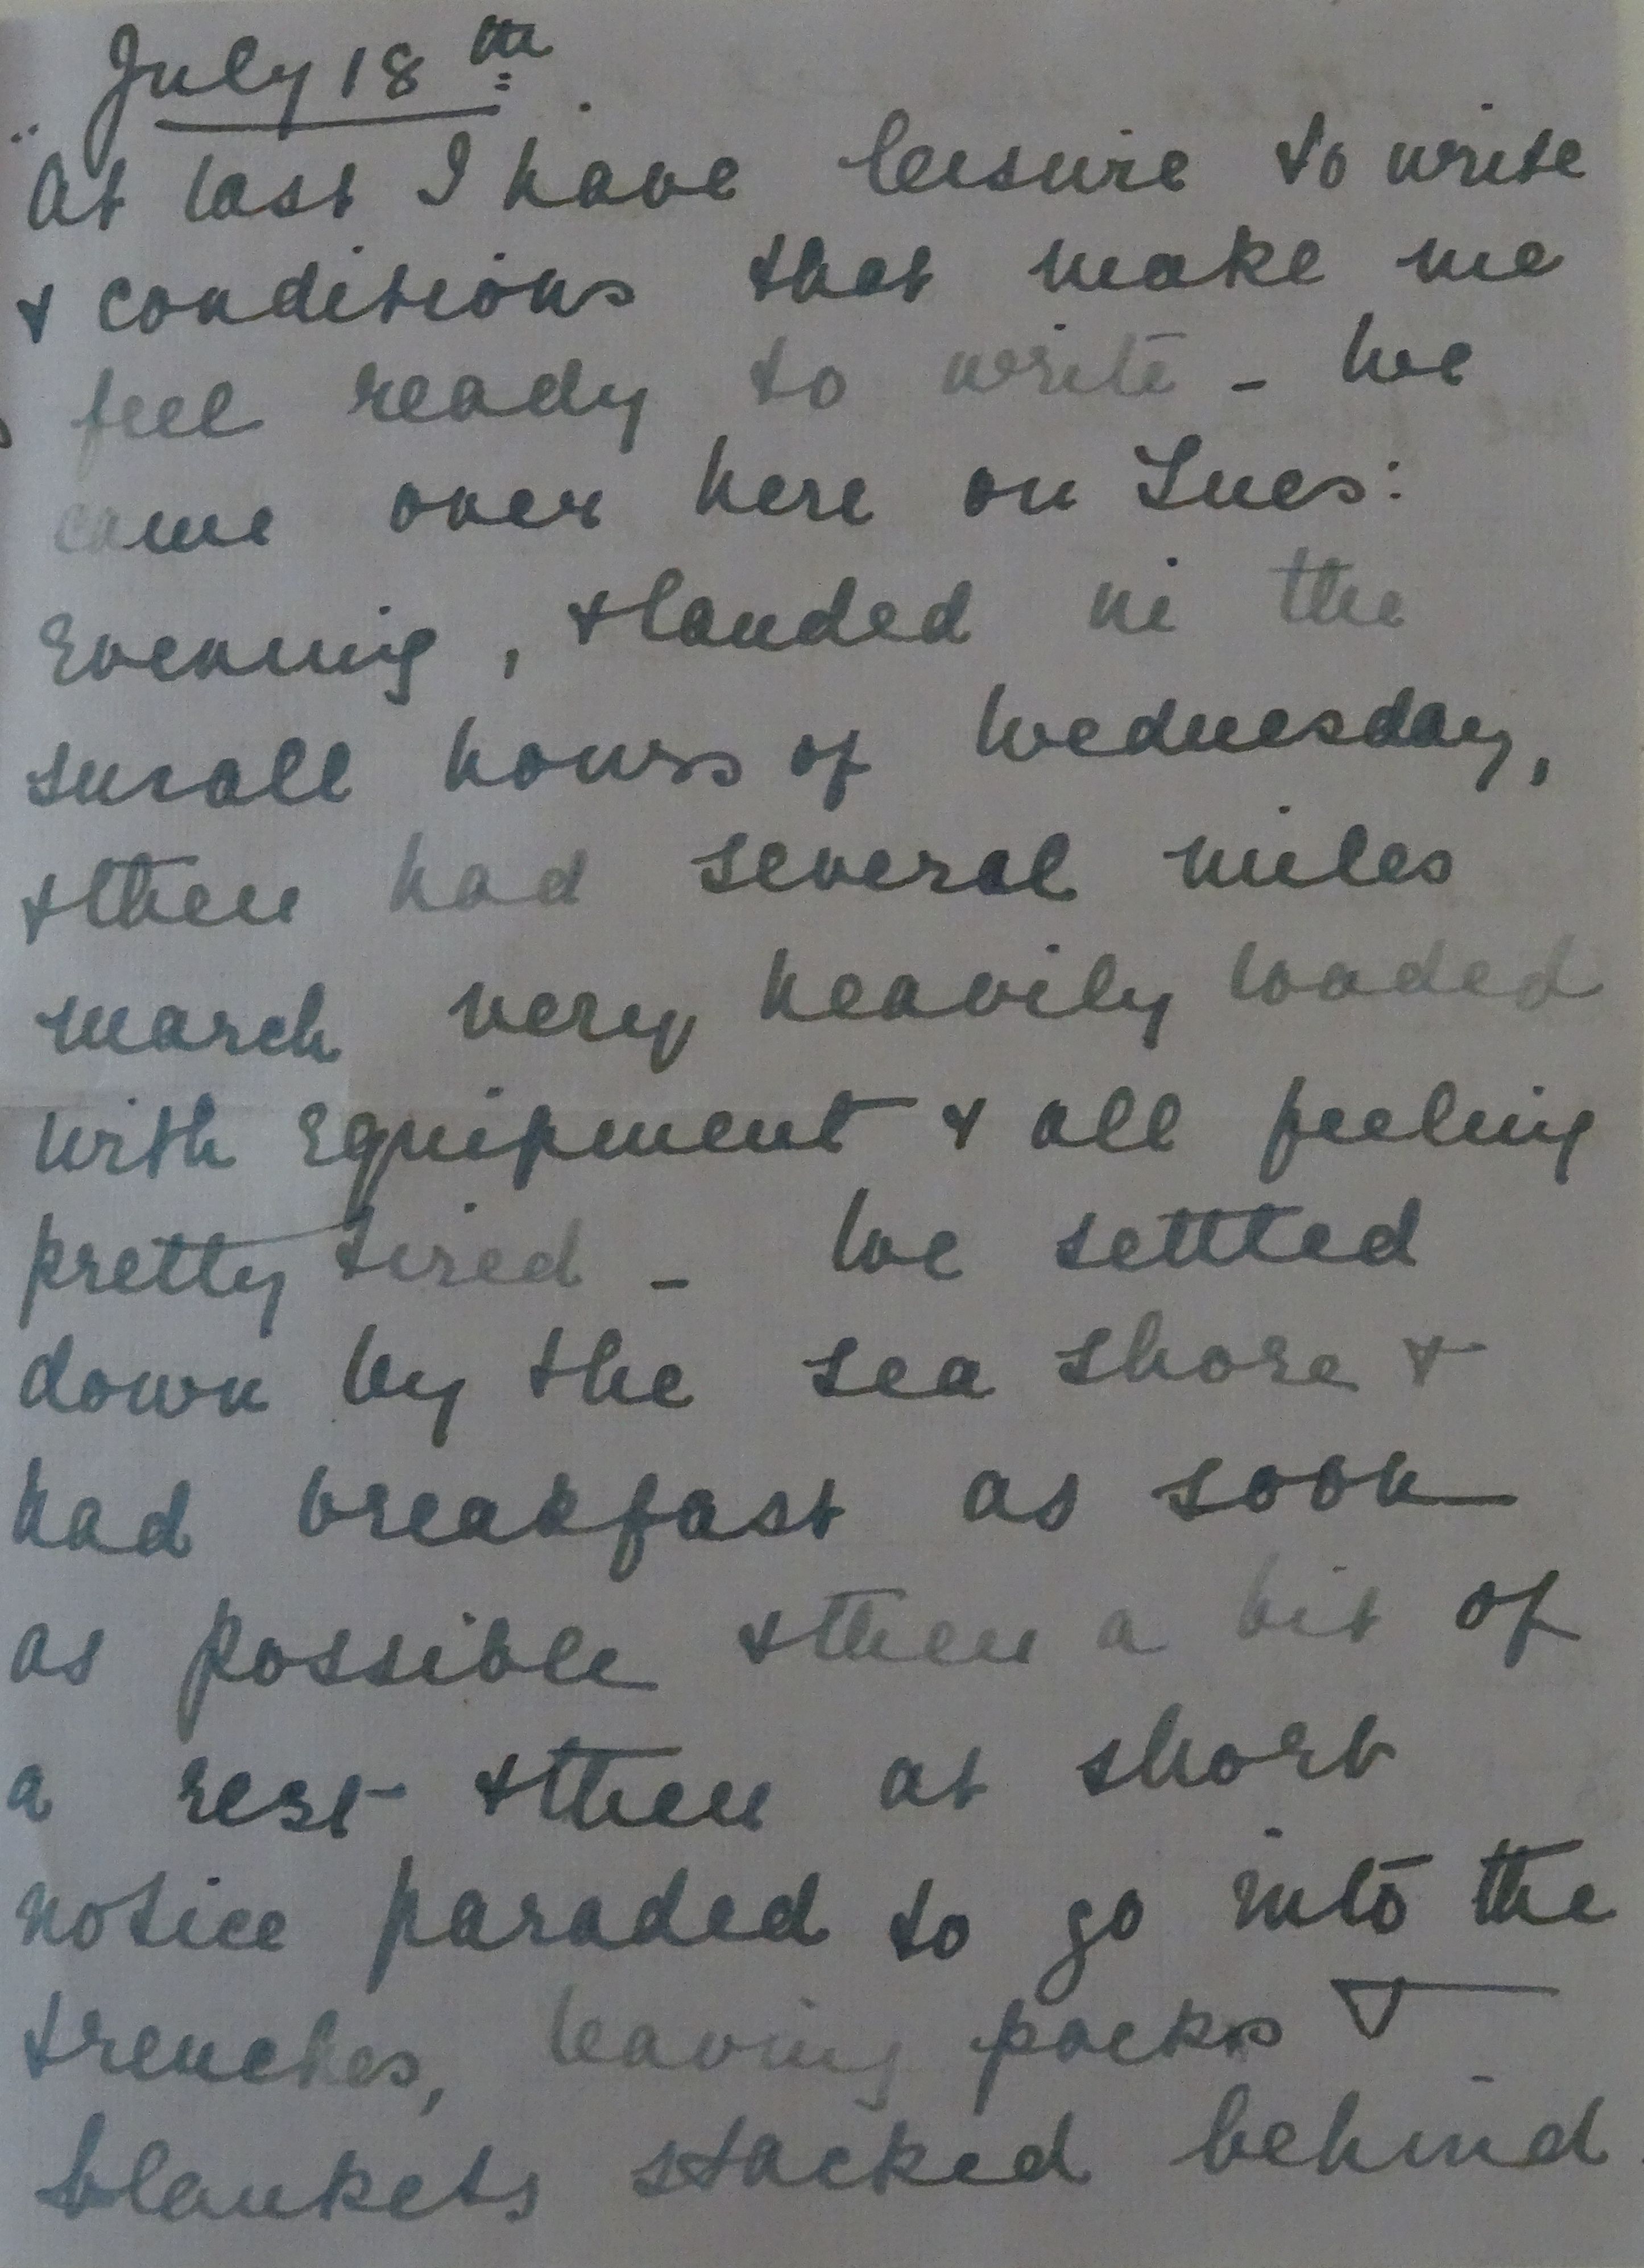 July 18th
At last I have leisure to write
& conditions that make me
feel ready to write - We
came over here on Tues:
Evening, & landed in the
small hours of Wednesday,
& then had several miles
march very heavily loaded
with Equipment & all feeling
pretty tired - We settled
down by the sea shore &
had breakfast as soon
as possible & then a bit of
a rest & then at short
notice paraded to go into the
trenches, leaving packs &
blankets stacked behind